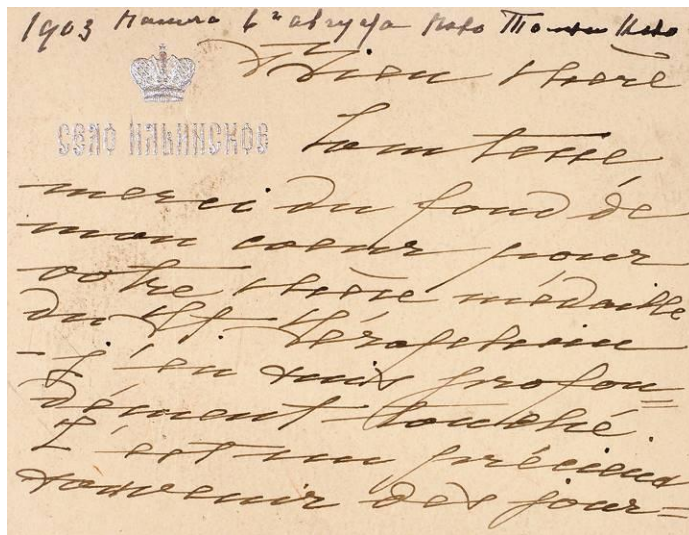 1903 6го августа
СЕЛО ИЛЬИНСКОЕ
Bien chère
Comtesse
merci du fond de
mon coeur pour
votre chère médaille
du St. Séraphim
- j'en suis profon=
dément touché
C'est un précieux
souvenir des jour=